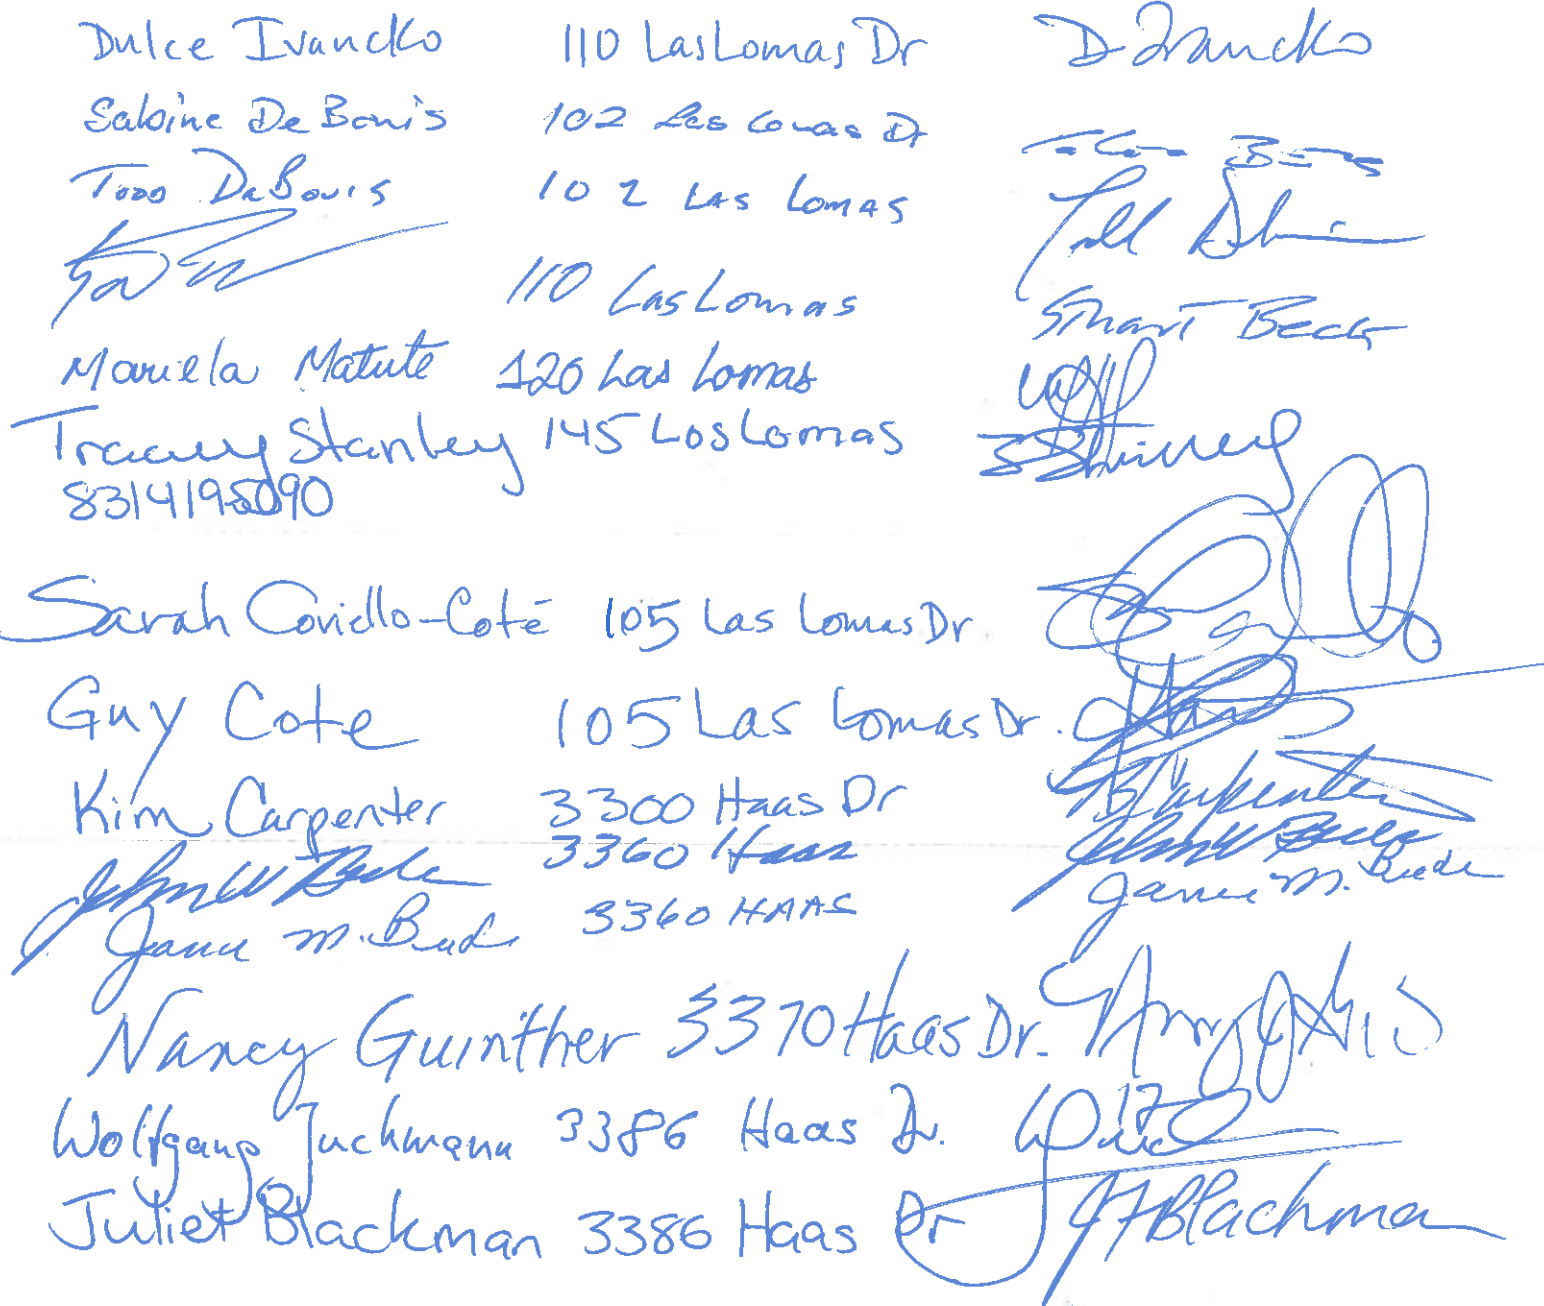 Dulce Ivancko 110 Las Lomas Dr D Ivancko
Sabine De Bonis 102 Las Lomas Dr
Todd DeBonis 102 Las Lomas
110 Las Lomas Stuart Beck
Mariela Matute 120 Las Lomas
Tracey Stanley 145 Los Lomas
8314195090
Sarah Coviello-Coté 105 Las Lomas Dr
Guy Cote 105 Las Lomas Dr.
Kim Carpenter 3300 Haas Dr KCarpenter
John W 3360 Haas John W
Janie M. 3360 HAAS Janie M.
Nancy Guinther 3370 Haas Dr.
Wolfgang Juchmann 3386 Haas Dr.
Juliet Blackman 3386 Haas Dr JFBlackman